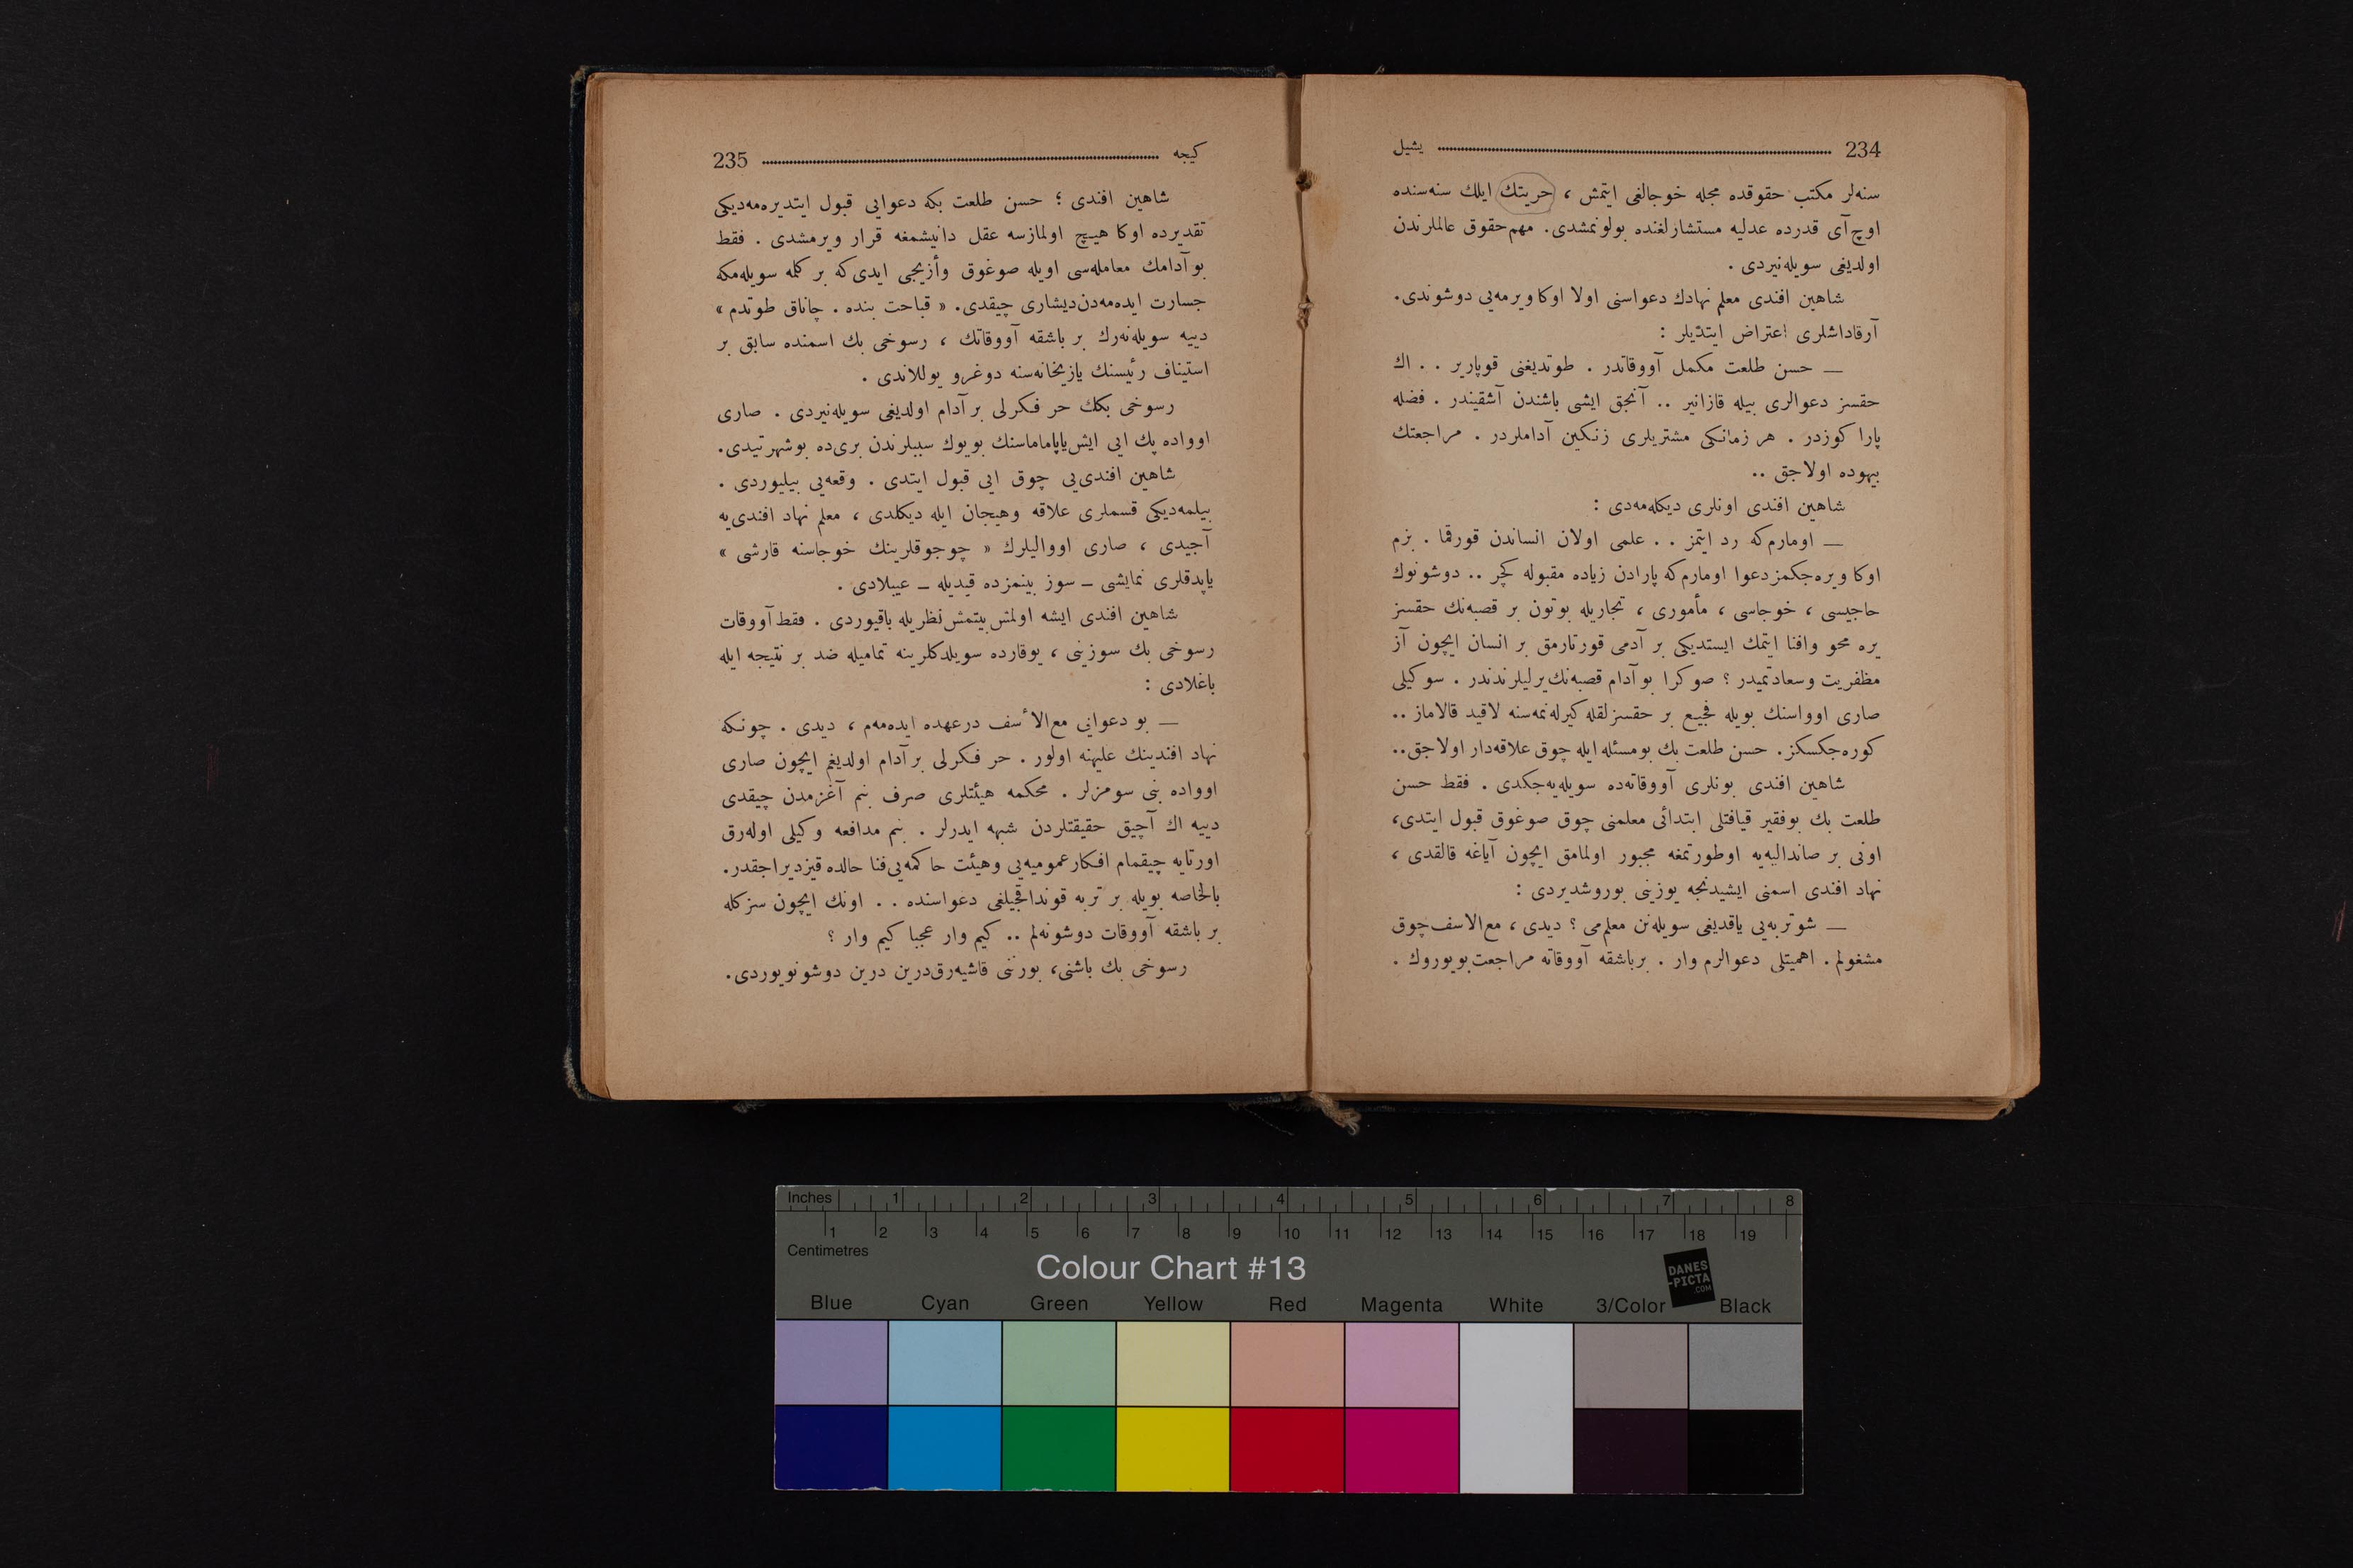 234 يشيل
سنه‌لر مكتب حقوقده مجله خوجالغى ايتمش ، حريتك ايلك سنه‌سنده
اوچ آى قدرده عدليه مستشارلغنده بولونمشدى. مهم حقوق عالملرندن
اولديغى سويله‌نيردى .
شاهين افندى معلم نهادك دعواسنى اولا اوكا ويرمه‌يى دوشوندى.
آرقاداشلرى اعتراض ايتديلر :
— حسن طلعت مكمل آووقاتدر . طوتديغنى قوپارير . . اك
حقسز دعوالرى بيله قازانير .. آنجق ايشى باشندن آشقيندر . فضله
پارا كوزدر . هر زمانكى مشتريلرى زنكين آداملردر . مراجعتك
بيهوده اولاجق ..
شاهين افندى اونلرى ديكله‌مه‌دى :
— اومارم كه رد ايتمز . . علمى اولان انساندن قورقما . بزم
اوكا ويره‌جكمز دعوا اومارم كه پارادن زياده مقبوله كچر .. دوشونوك
حاجيسى ، خوجاسى ، مأمورى ، تجاريله بوتون بر قصبه‌نك حقسز
يره محو وافنا ايتمك ايستديكى بر آدمى قورتارمق بر انسان ايچون آز
مظفريت وسعادتميدر ؟ صوكرا بو آدام قصبه‌نك يرليلرندندر . سوكيلى
صارى اوواسنك بويله فجيع بر حقسزلقله كيرله‌نمه‌سنه لاقيد قالاماز ..
كوره‌جكسكز . حسن طلعت بك بومسئله ايله چوق علاقه‌دار اولاجق..
شاهين افندى بونلرى آووقاته‌ده سويله‌يه‌جكدى . فقط حسن
طلعت بك بوفقير قيافتلى ابتدائى معلمنى چوق صوغوق قبول ايتدى،
اونى بر صانداليه‌يه اوطورتمغه مجبور اولمامق ايچون آياغه قالقدى ،
نهاد افندى اسمنى ايشيدنجه يوزينى بوروشديردى :
— شو تربه‌يى ياقديغى سويله‌نن معلم‌مى ؟ ديدى ، مع‌الاسف چوق
مشغولم . اهميتلى دعوالرم وار . برباشقه آووقاته مراجعت بويوروك .
كيجه 235
شاهين افندى ؛ حسن طلعت بكه دعوايى قبول ايتديره‌مه‌ديكى
تقديرده اوكا هيچ اولمازسه عقل دانيشمغه قرار ويرمشدى . فقط
بو آدامك معامله‌سى اويله صوغوق وأزيجى ايدى كه بر كلمه سويله‌مكه
جسارت ايده‌مه‌دن ديشارى چيقدى. « قباحت بنده . چاناق طوتدم »
دييه سويله‌نه‌رك بر باشقه آووقاتك ، رسوخى بك اسمنده سابق بر
استيناف رئيسنك يازيخانه‌سنه دوغرو يوللاندى .
رسوخى بكك حر فكرلى بر آدام اولديغى سويله‌نيردى . صارى
اوواده پك ايى ايش ياپاماماسنك بويوك سببلرندن برى‌ده بو شهرتيدى.
شاهين افندى‌يى چوق ايى قبول ايتدى . وقعه‌يى بيليوردى .
بيلمه‌ديكى قسملرى علاقه وهيجان ايله ديكلدى ، معلم نهاد افندى‌يه
آجيدى ، صارى اوواليلرك « چوجوقلرينك خوجاسنه قارشى »
ياپدقلرى نمايشى — سوز بينمزده قيديله — عيبلادى .
شاهين افندى ايشه اولمش بيتمش نظريله باقيوردى . فقط آووقات
رسوخى بك سوزينى ، يوقارده سويلدكلرينه تماميله ضد بر نتيجه ايله
باغلادى :
— بو دعوايى مع‌الأسف درعهده ايده‌مه‌م ، ديدى . چونكه
نهاد افندينك عليهنه اولور . حر فكرلى بر آدام اولديغم ايچون صارى
اوواده بنى سومزلر . محكمه هيئتلرى صرف بنم آغزمدن چيقدى
دييه اك آچيق حقيقتلردن شبهه ايدرلر . بنم مدافعه وكيلى اوله‌رق
اورتايه چيقمام افكار عموميه‌يى وهيئت حاكمه‌يى فنا حالده قيزديراجقدر.
بالخاصه بويله بر تربه قونداقجيلغى دعواسنده . . اونك ايچون سزكله
بر باشقه آووقات دوشونه‌لم .. كيم وار عجبا كيم وار ؟
رسوخى بك باشنى، بورننى قاشيه‌رق درين درين دوشونويوردى.
Inches 1 2 3 4 5 6 7 8
1 2 3 4 5 6 7 8 9 10 11 12 13 14 15 16 17 18 19
Centimetres
Colour Chart #13
DANES
-PICTA
.COM
Blue Cyan Green Yellow Red Magenta White 3/Color Black